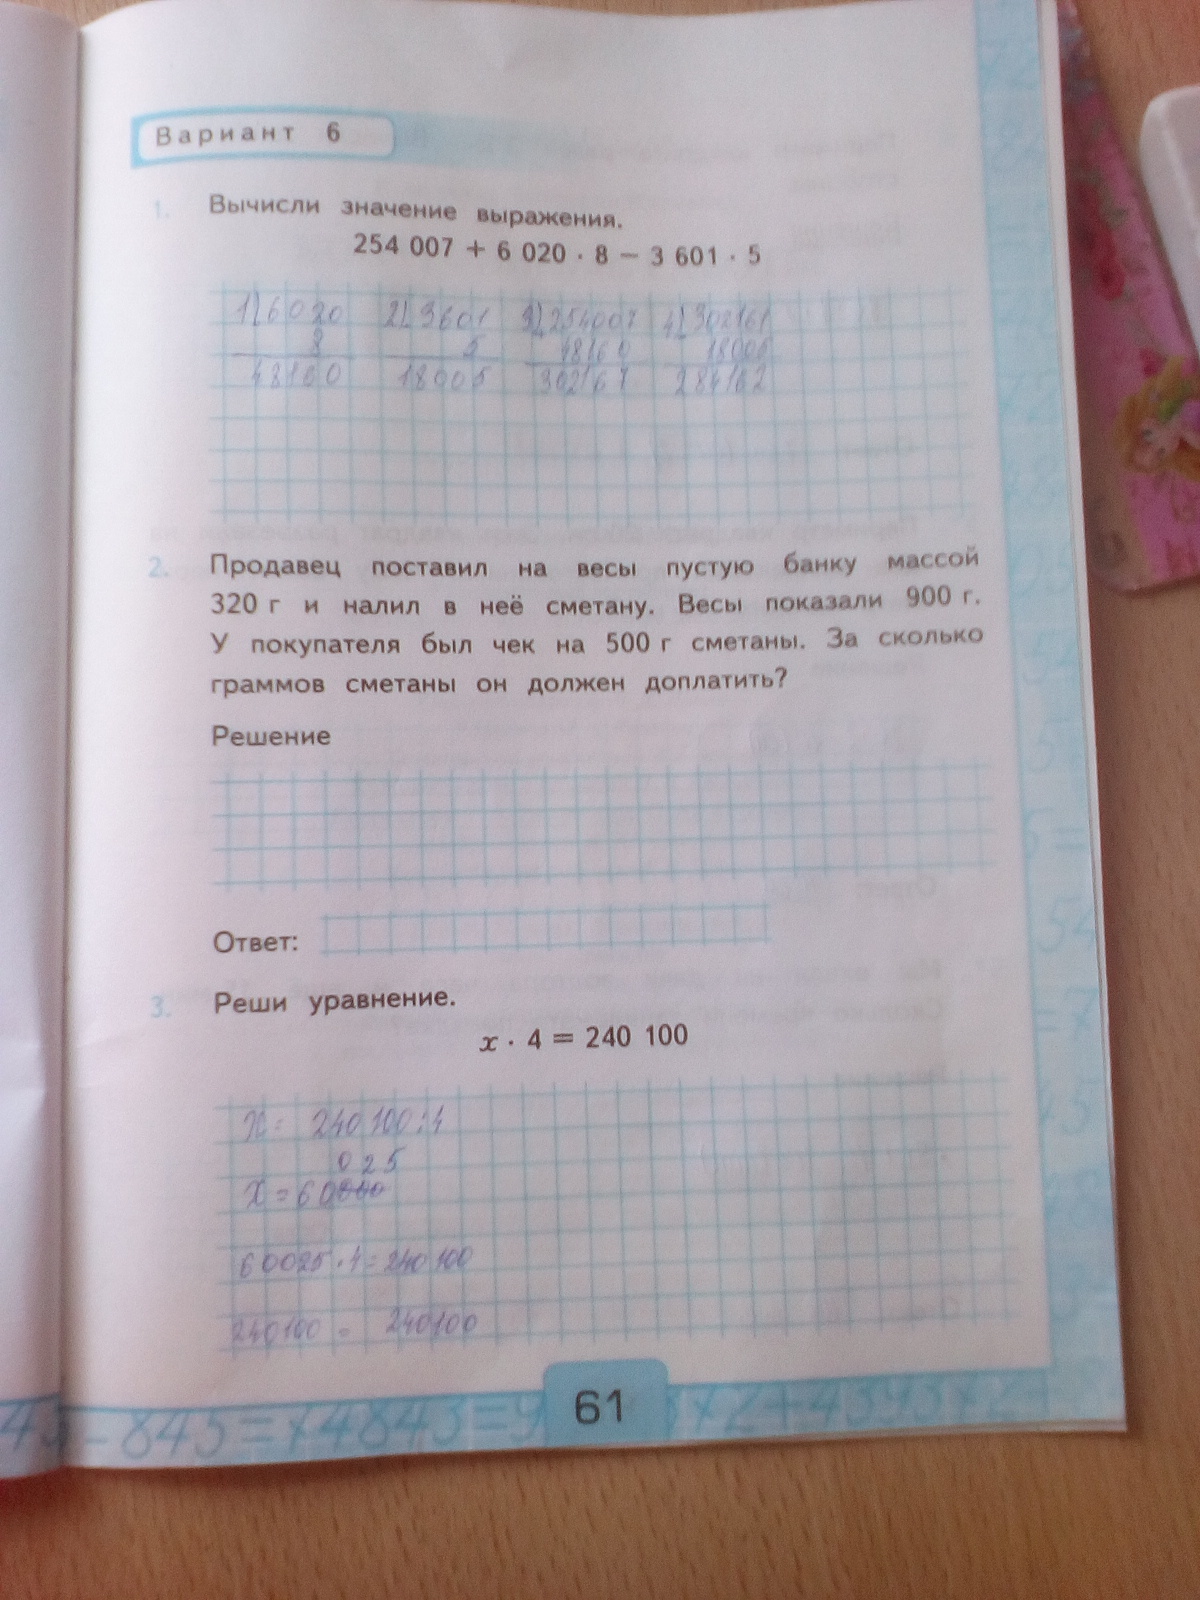 Вариант 6
1. Вычисли значение выражения.
254 007 + 6 020 · 8 − 3 601 · 5
1) 6020 2) 3601 3) 254007 4) 302167
8 5 48160 18005
48160 18005 302167 284162
2. Продавец поставил на весы пустую банку массой
320 г и налил в неё сметану. Весы показали 900 г.
У покупателя был чек на 500 г сметаны. За сколько
граммов сметаны он должен доплатить?
Решение
Ответ:
3. Реши уравнение.
x · 4 = 240 100
x = 240 100 : 4
025
x = 60000
60025 · 4 = 240 100
240100 = 240100
61